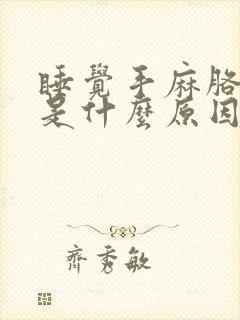 睡覺手麻胳
是什麼原因
齊秀敏